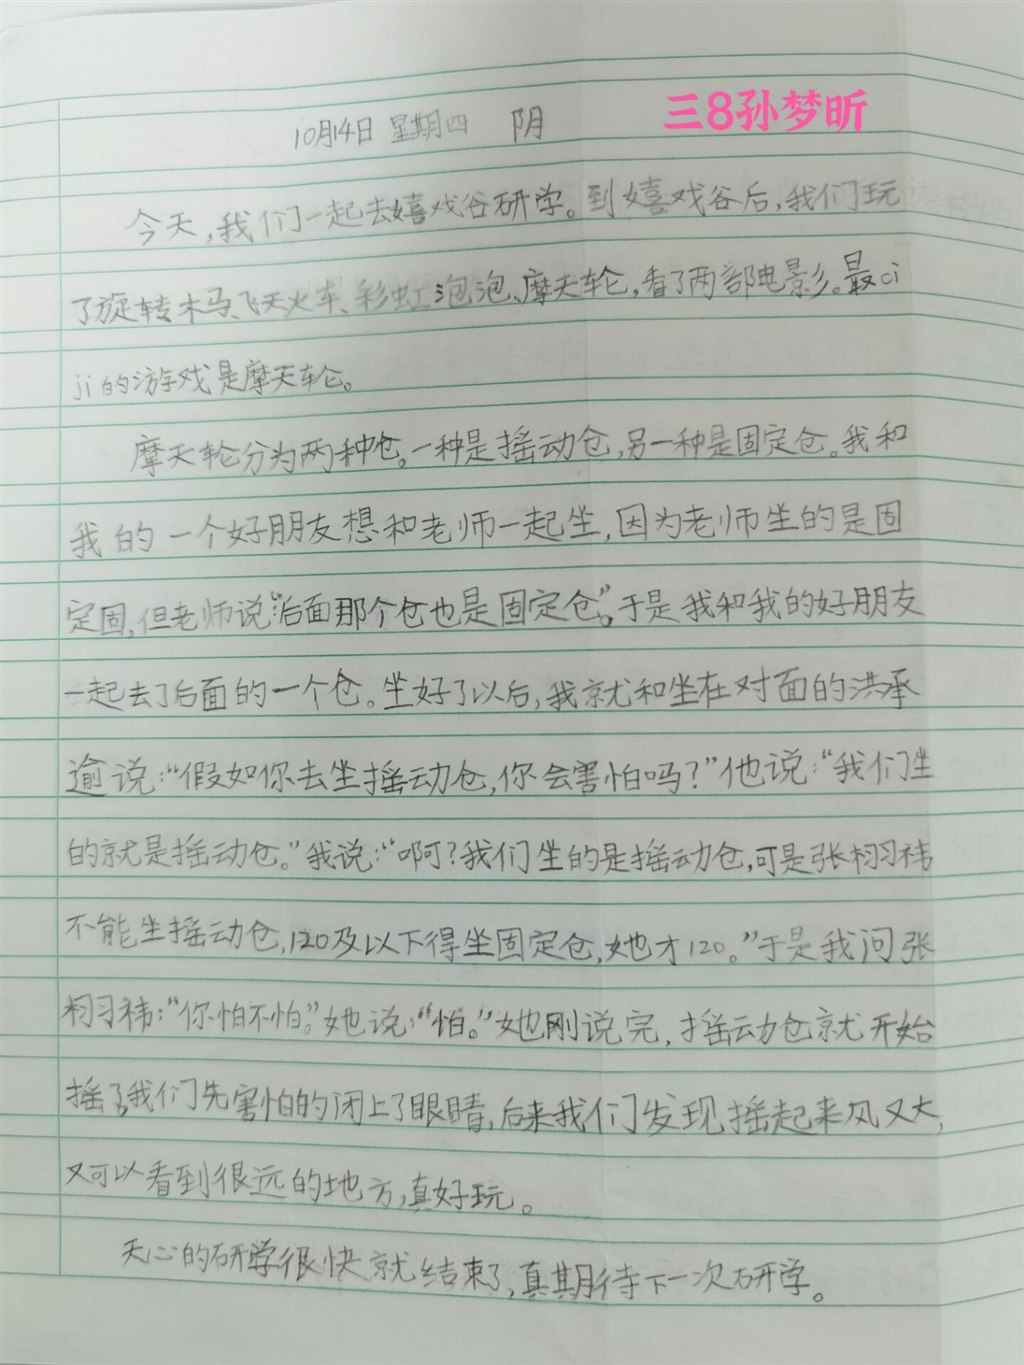 三8孙梦昕
10月14日 星期四 阴
今天,我们一起去嬉戏谷研学。到嬉戏谷后,我们玩
了旋转木马、飞天火车、彩虹泡泡、摩天轮,看了两部电影。最ci
ji的游戏是摩天轮。
摩天轮分为两种仓。一种是摇动仓,另一种是固定仓。我和
我的一个好朋友想和老师一起坐,因为老师坐的是固
定固,但老师说:“后面那个仓也是固定仓”。于是我和我的好朋友
一起去了后面的一个仓。坐好了以后,我就和坐在对面的洪承
逾说:“假如你去坐摇动仓,你会害怕吗?”他说:“我们坐
的就是摇动仓。”我说:“啊?我们坐的是摇动仓,可是张栩祎
不能坐摇动仓,120及以下得坐固定仓,她才120。”于是我问张
栩祎:“你怕不怕。”她说:“怕。”她刚说完,摇动仓就开始
摇了,我们先害怕的闭上了眼睛,后来我们发现摇起来风又大,
又可以看到很远的地方,真好玩。
天心的研学很快就结束了,真期待下一次研学。